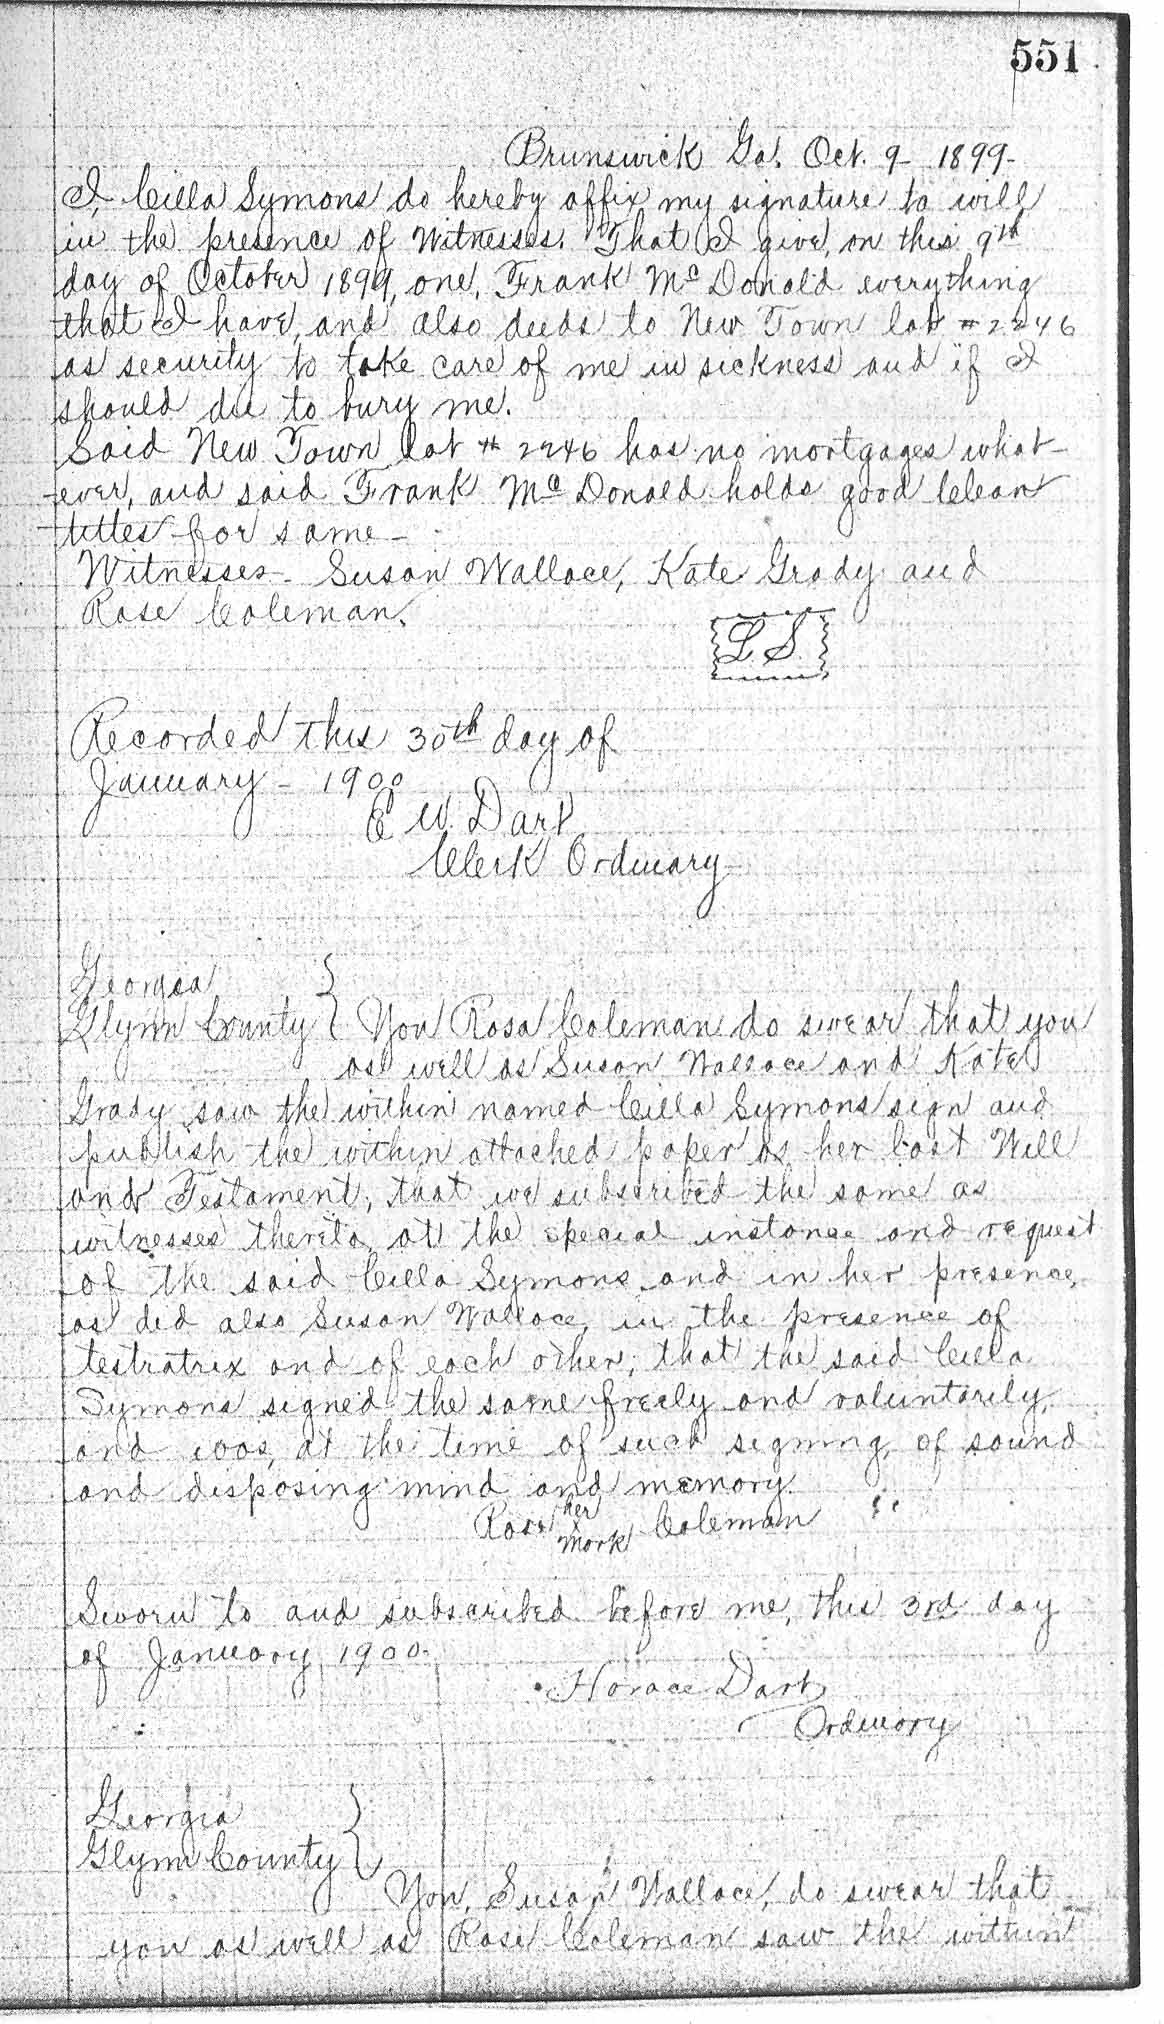 551
Brunswick Ga. Oct. 9 - 1899 -
I, Cilla Symons do hereby affix my signature to will
in the presence of Witnesses. That I give, on this 9th
day of October 1899, one, Frank McDonald everything
that I have, and also deeds to New Town lot #2246
as security to take care of me in sickness and if I
should die to bury me.
Said New Town lot # 2246 has no mortgages what-
-ever, and said Frank McDonald holds good Clean
titles for same -
Witnesses - Susan Wallace, Kate Grady and
Rose Coleman.
L S
Recorded this 30th day of
January - 1900
E W. Dart
Clerk Ordinary
Georgia
Glynn County } You Rosa Coleman do swear that you
as well as Susan Wallace and Kate
Grady saw the within named Cilla Symons sign and
publish the within attached paper as her last Will
and Testament, that we subscribed the same as
witnesses thereto, at the special instance and request
of the said Cilla Symons and in her presence,
as did also Susan Wallace, in the presence of
testratrix and of each other, that the said Cilla
Symons signed the same freely and voluntarily,
and was, at the time of such signing, of sound
and disposing mind and memory.
Rosa her x mark Coleman
Sworn to and subscribed before me, this 3rd day
of January 1900.
Horace Dart
Ordinary
Georgia
Glynn County }
You, Susan Wallace, do swear that
you as well as Rose Coleman saw the within